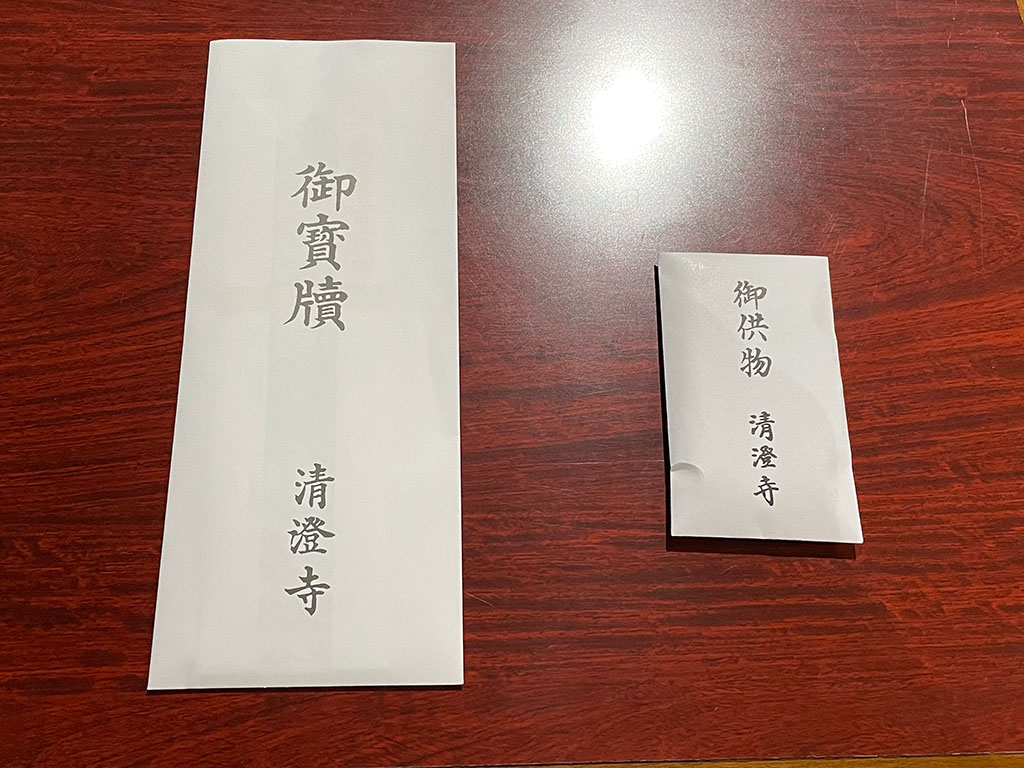 御寶牘
清澄寺
御供物
清澄寺